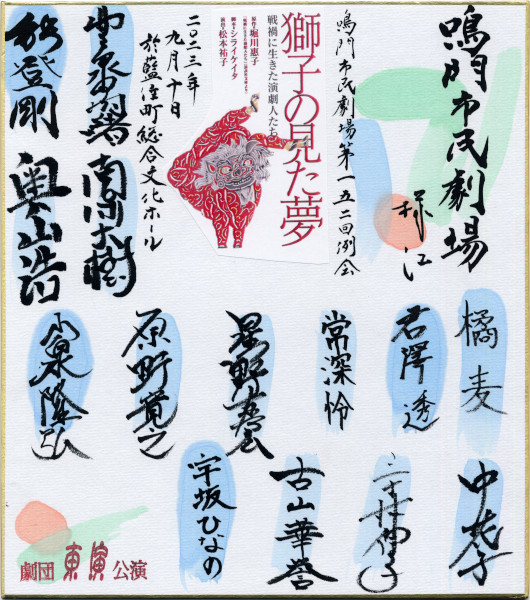 鳴門市民劇場
様江
鳴門市民劇場第一五二回例会
獅子の見た夢
戦禍に生きた演劇人たち
原作●堀川惠子
脚本●シライケイタ
演出●松本祐子
二〇二三年
九月十日
於藍住町総合文化ホール
南保大樹
能登剛
奥山浩
橘麦
君澤透
常深怜
星野
原野寛之
小泉隆弘
中花子
古山華誉
宇坂ひなの
劇団東演公演